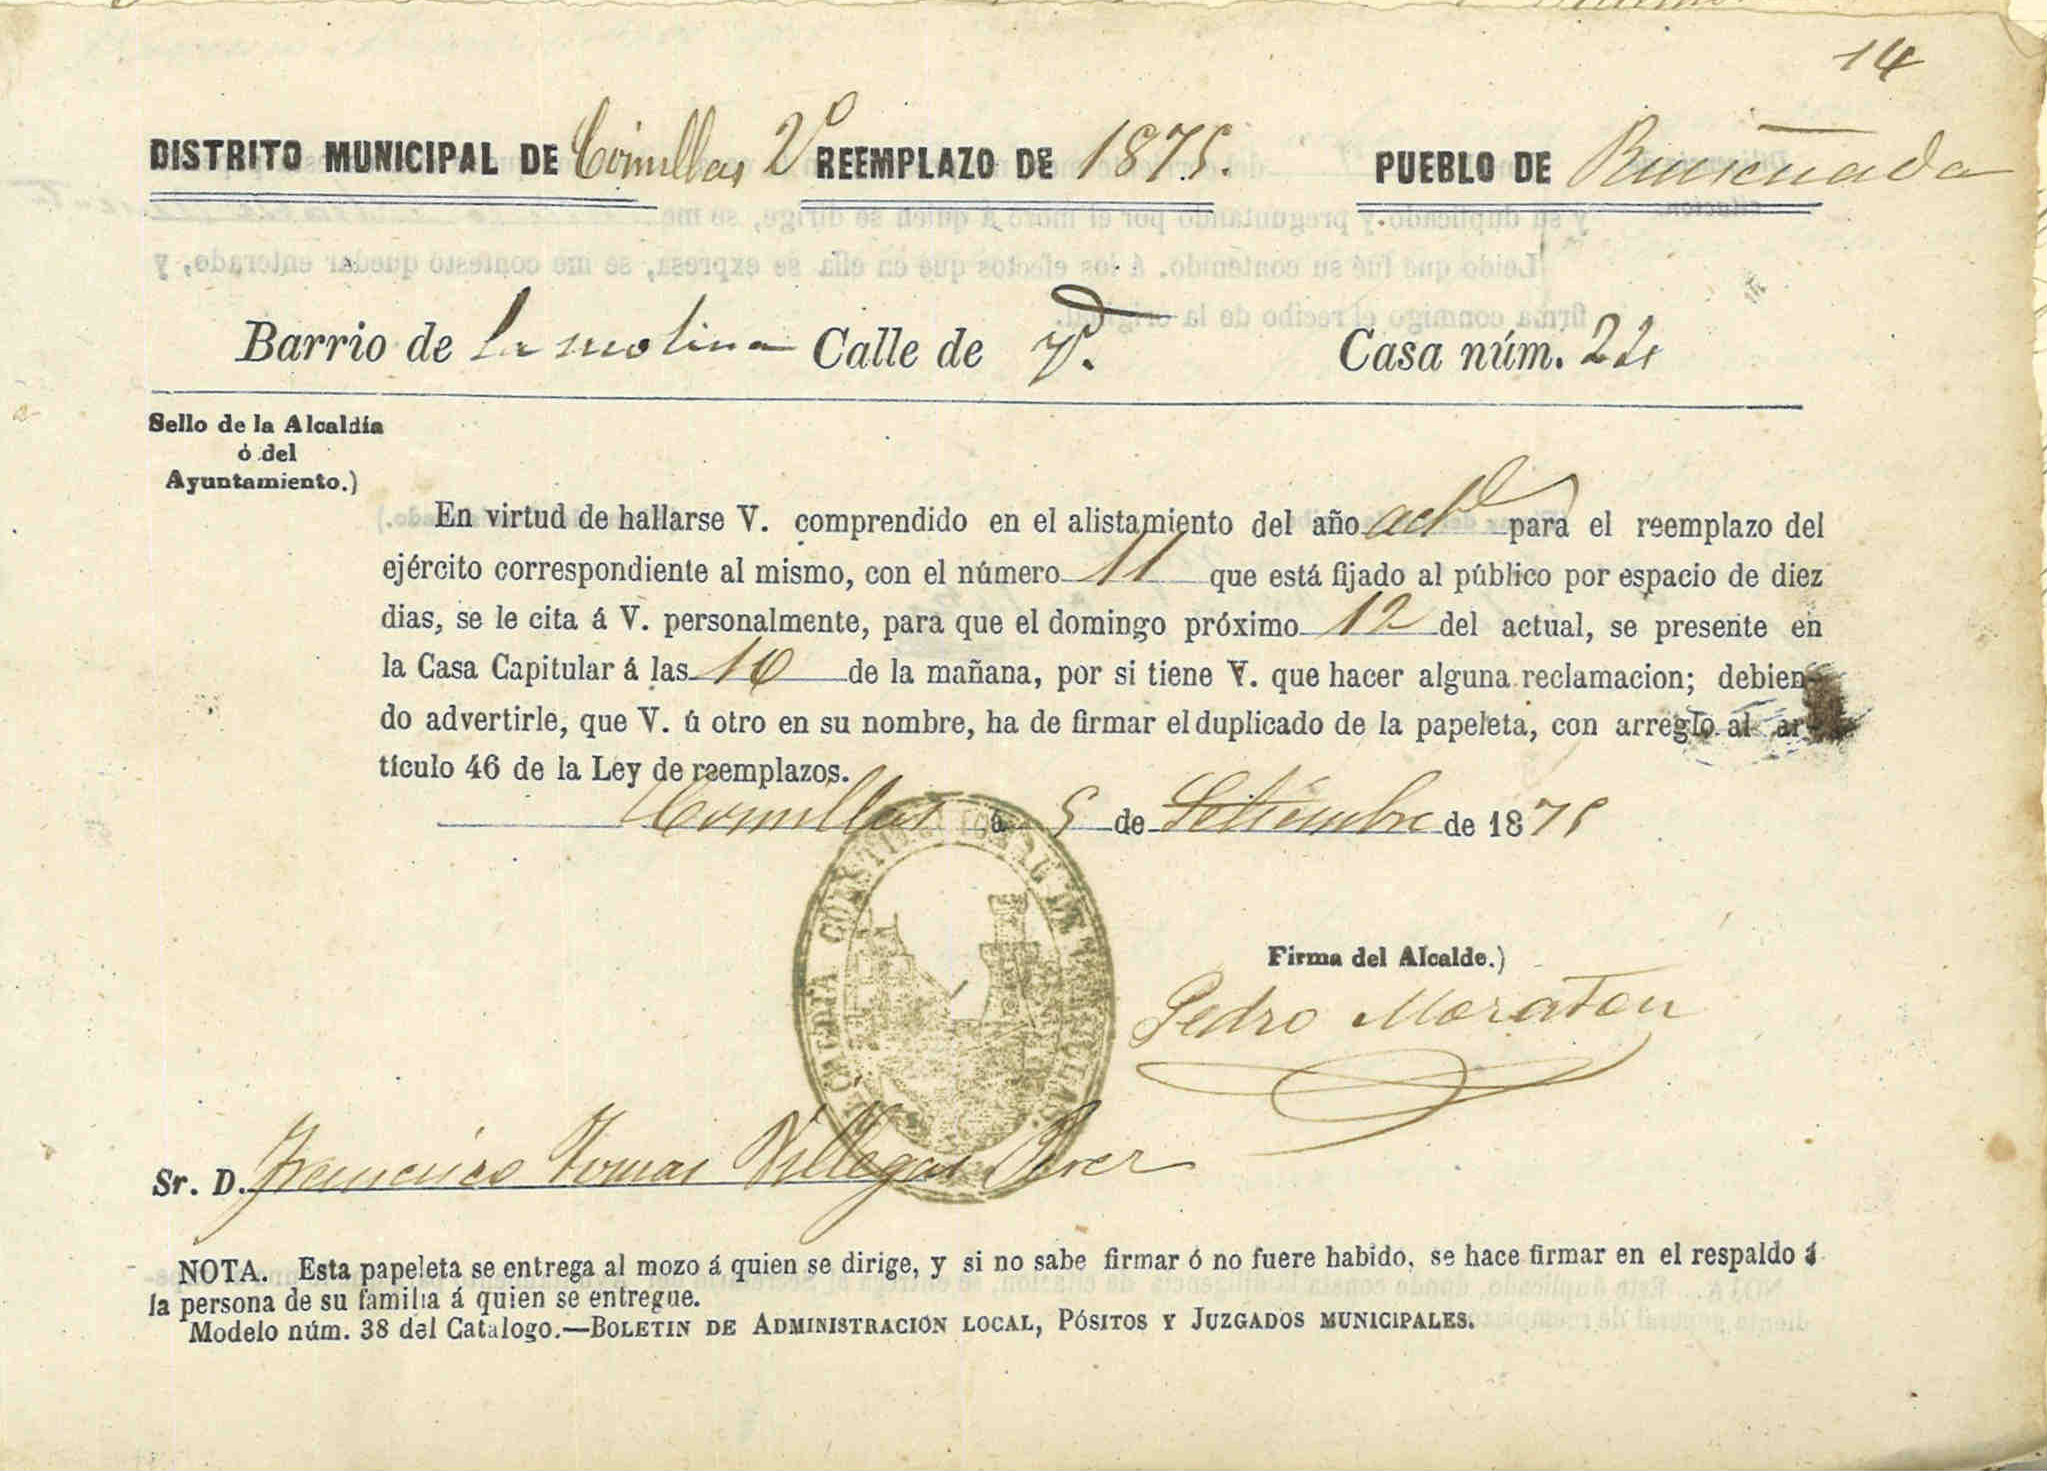 14
DISTRITO MUNICIPAL DE Comillas 2º REEMPLAZO DE 1875. PUEBLO DE Ruiseñada
Barrio de La molina Calle de Casa núm. 24
Sello de la Alcaldía
ó del
Ayuntamiento.)
En virtud de hallarse V. comprendido en el alistamiento del año actl para el reemplazo del
ejército correspondiente al mismo, con el número 11 que está fijado al público por espacio de diez
dias, se le cita á V. personalmente, para que el domingo próximo 12 del actual, se presente en
la Casa Capitular á las 10 de la mañana, por si tiene V. que hacer alguna reclamacion; debien-
do advertirle, que V. ú otro en su nombre, ha de firmar el duplicado de la papeleta, con arreglo al ar-
tículo 46 de la Ley de reemplazos.
Comillas á 5 de Setiembre de 1875
ALCALDIA CONSTITUCIONAL DE COMILLAS
Firma del Alcalde.)
Pedro Moraton
Sr. D. Francisco Tomas Villegas
NOTA. Esta papeleta se entrega al mozo á quien se dirige, y si no sabe firmar ó no fuere habido, se hace firmar en el respaldo á
la persona de su familia á quien se entregue.
Modelo núm. 38 del Catalogo.—BOLETIN DE ADMINISTRACIÓN LOCAL, PÓSITOS Y JUZGADOS MUNICIPALES.